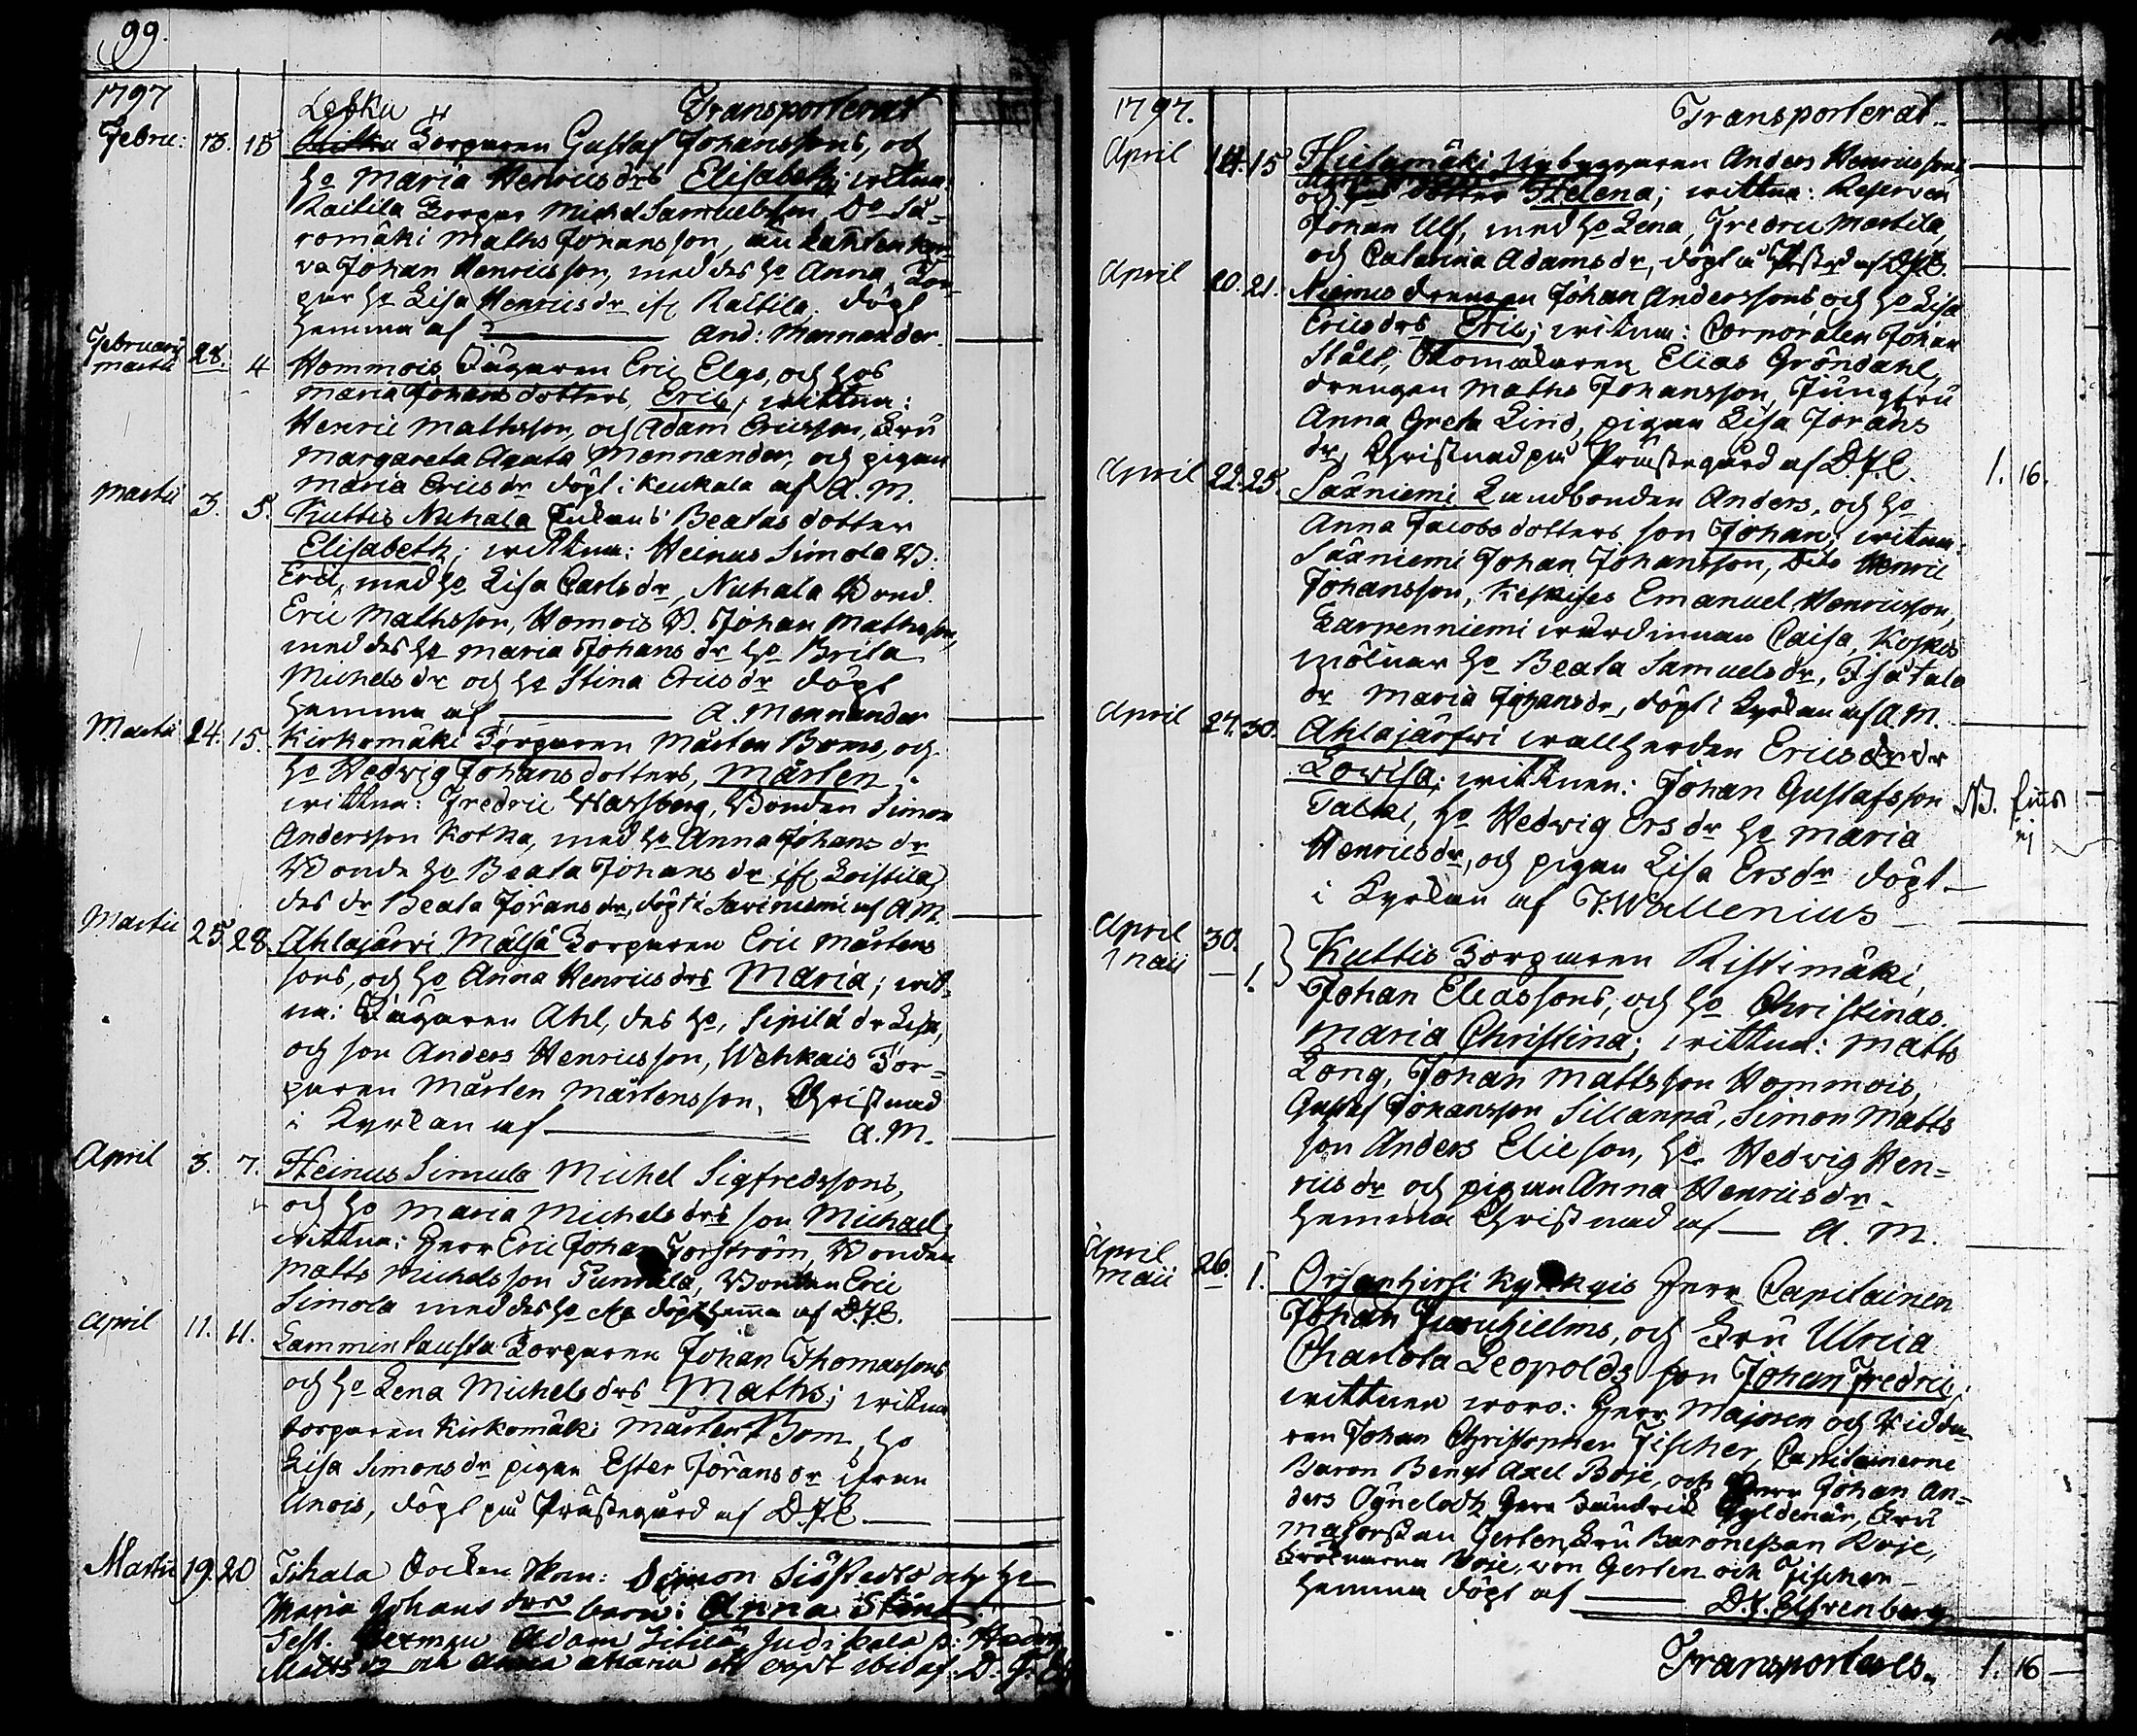 99.
1797
Lepku Transporterat
Febru: 13. 15 Torparen Gustaf Johanssons, och
ho Maria Henricsdrs Elisabeth; wittna:
Raitila Torpar Michel Samuelsson, Do Sa-
romäki Maths Johansson,
va Johan Henricsson, med des ho Anna, Tor-
par ho Lisa Henricsdr ifr Raitila. döpt
hemma af And: Mennander.
February 28.
Martii 4 Hommois Jägaren Eric Elgs, och hos
Maria Johansdotters, Eric; wittna:
Henric Mathsson, och Adam Ericsson, Fru
Margareta Agata Mennander, och pigan
Maria Ericsdr döpt i Keukala af A. M.
Martii 3. 5. Kuttis Nuhala Beatas dotter
Elisabeth; wittna: Heinus Simola B:
Eric, med ho Lisa Carlsdr, Nuhala Bond.
Eric Mathsson, Homois B. Johan Mathsson,
med des ho Maria Johansdr ho Brita
Michelsdr och ho Stina Ericsdr döpt
hemma af A. Mennander
Martii 24. 15. Kirkomäki Torparen Mårten Boms, och
ho Hedwig Johansdotters, Mårten;
wittna: Fredric Wassberg, Bonden Simon
Andersson Kotka, med ho Anna Johansdr
Bonde ho Beata Johansdr ifr Loistila,
des dr Beata Jöransdr, döpt i Saviniemi af A M.
Martii 25. 28. Ahlajärvi Mälsä Torparen Eric Mårtens
sons, och ho Anna Henricsdrs Maria; witt-
na: Jägaren Ahl, des ho, Sipilä dr Lisa,
och son Anders Henricsson, Wehkais Tor=
paren Mårten Mårtensson, Christnad
i Kyrkan af A. M.
April 3. 7. Heinus Simula Michel Sigfredssons,
och ho Maria Michelsdrs son Michael,
wittna: Herr Eric Johan Forström, Bonden
Matts Michelsson Punnala, Bonden Eric
Simola med des ho döpt hemma af D.J.E.
April 11. 11. Lamminpausta Torparen Johan Thomassons
och ho Lena Michelsdrs Maths; wittna
torparen Kirkomäki Mårten Bom, ho
Lisa Simonsdr pigan Ester Jöransdr ifrån
Anois, döpt på Prästegård af D.J.E
Martii 19. 20 Tikala Simon Siöstedts och ho
Maria Johans barn: Anna Stina
Test. Adam Sipilä, Hedvig
och Anna Maria D. J. E
1797. Transporterat
April 14. 15 Hiidamäki Nybyggaren Anders Henricssons
och dotter Helena; wittna: Reserven
Johan Ulf, med ho Lena, Fredric Martila,
och Catarina Adamsdr, döpt i Prästgd af D.J.E.
April 20. 21. Niemis drengen Johan Anderssons och ho Lisa
Ericsdrs Eric; wittna: Corporalen Johan
Stålt, Skomakaren Elias Gröndahl,
drengen Maths Johansson, Jungfru
Anna Greta Lind, pigan Lisa Jörans
dr, Christnad på Prästegård af D.J.E. 1. 16.
April 22. 25. Sääniemi Landbonden Anders, och ho
Anna Jacobsdotters son Johan; wittna-
Sääniemi Johan Johansson, Dito Henric
Johansson, Keskises Emanuel Henricsson,
Karpenniemi wärdinnan Caisa, Koskis
mölnar ho Beata Samuelsdr, Isotalo
dr Maria Johansdr, döpt i Kyrkan af A M.
April 27. 30. Ahlajärfwi wallherden Ericsdrs dr
Lovisa; wittnen: Johan Gustafsson NB. fins
Takki, ho Hedwig Ersdr ho Maria ej
Henricsdr, och pigan Lisa Ersdr döpt
i Kyrkan af J. Wallenius
April 30.
Maii 1. Kuttis Torparen Ristimäki,
Johan Eliassons, och ho Christinas
Maria Christina; wittna: Matts
Long, Johan Mattsson Hommois,
Gustaf Johansson Sillanpä, Simon Matts
son Anders Elieson, ho Hedwig Hen=
ricsdr och pigan Anna Henricsdr-
hemma Christnad af A. M.
April 26.
Maii 1. Orjanhirsi Herr Capitainen
Johan och Fru Ulrica
Charlota Leopolds son Johan Fredric,
wittnen woro: Herr Majoren och Ridda-
ren Johan Christopher Fischer, Capitainerne
Baron Bengt Axel Boje, och Herr Johan An=
ders Ögnelodh Herr Gyldenär, Fru
Majorskan Gerten, Fru Baronessan Boje,
Fröknarna Boje, von Gerten och Fischer
hemma döpt af D. J. Elfvenberg
Transporteres. 1. 16